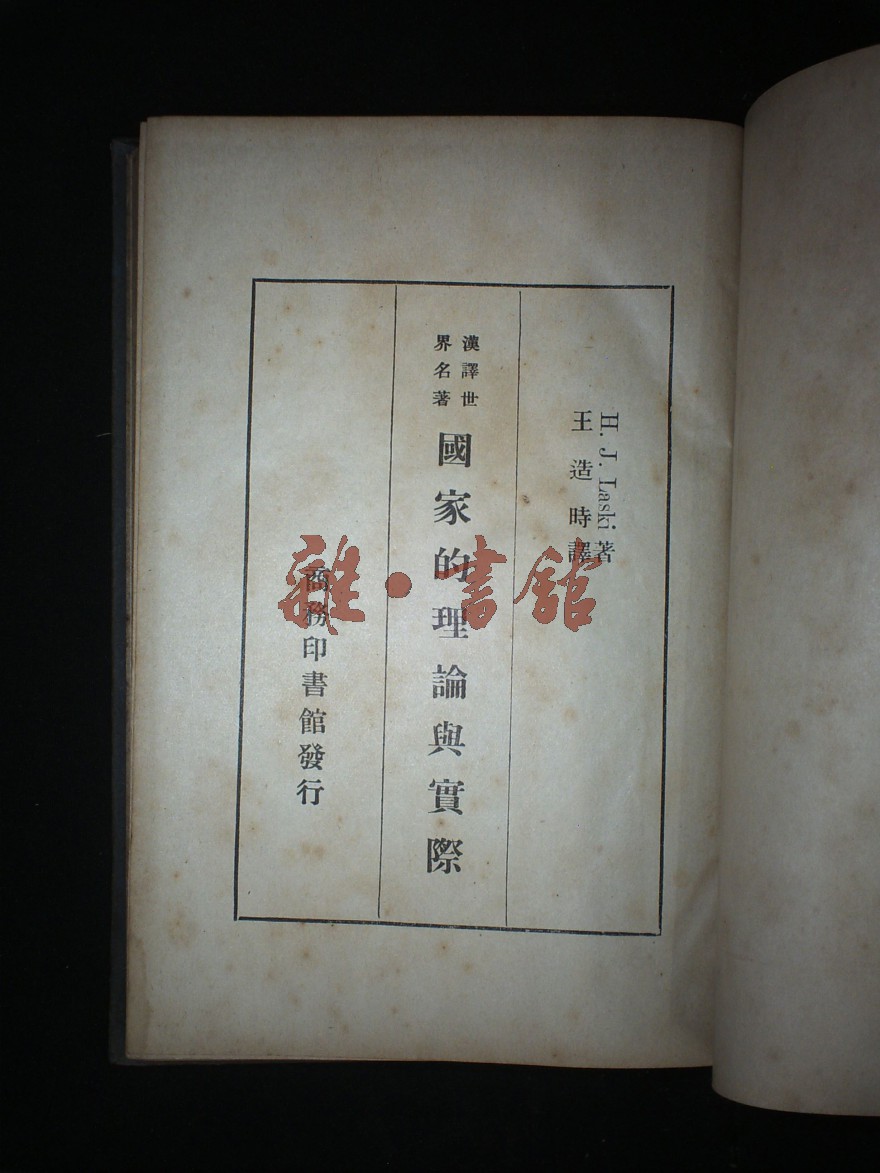 H. J. Laski著
王造時譯
漢譯世
界名著
國家的理論與實際
商務印書館發行
雜·書館